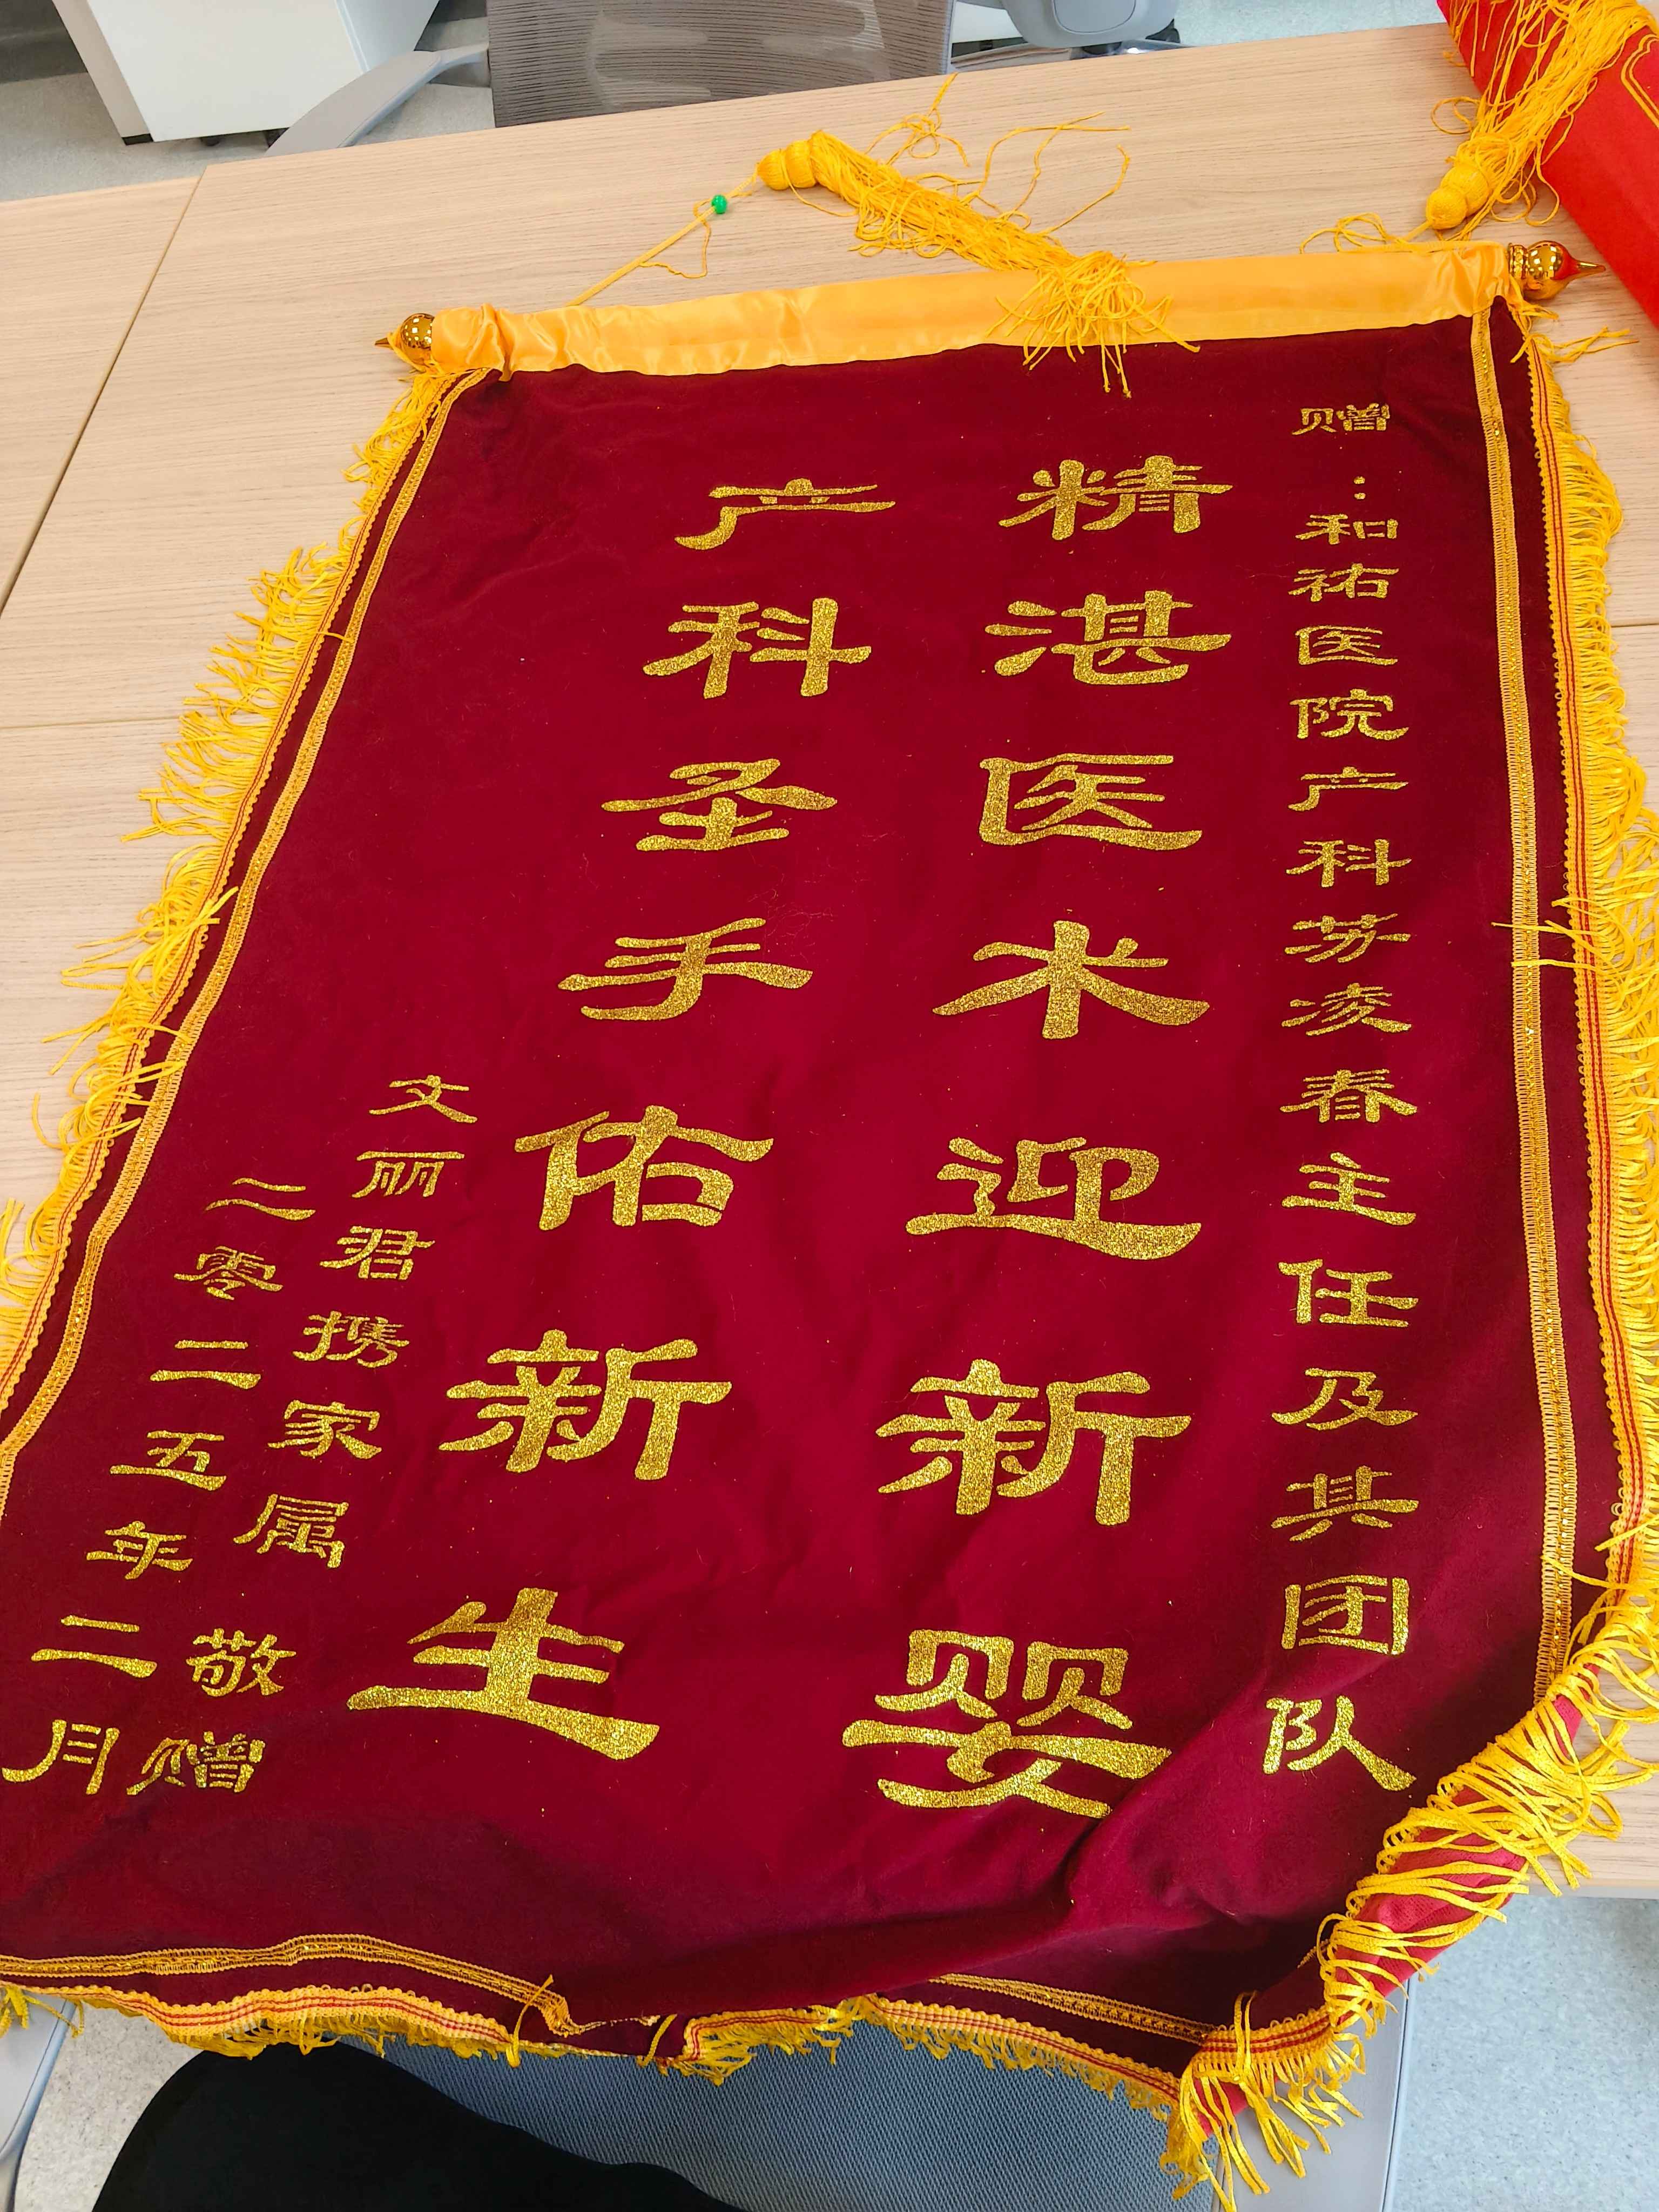 赠：和祐医院产科苏凌春主任及其团队
精湛医术迎新婴
产科圣手佑新生
文丽君携家属敬赠
二零二五年二月